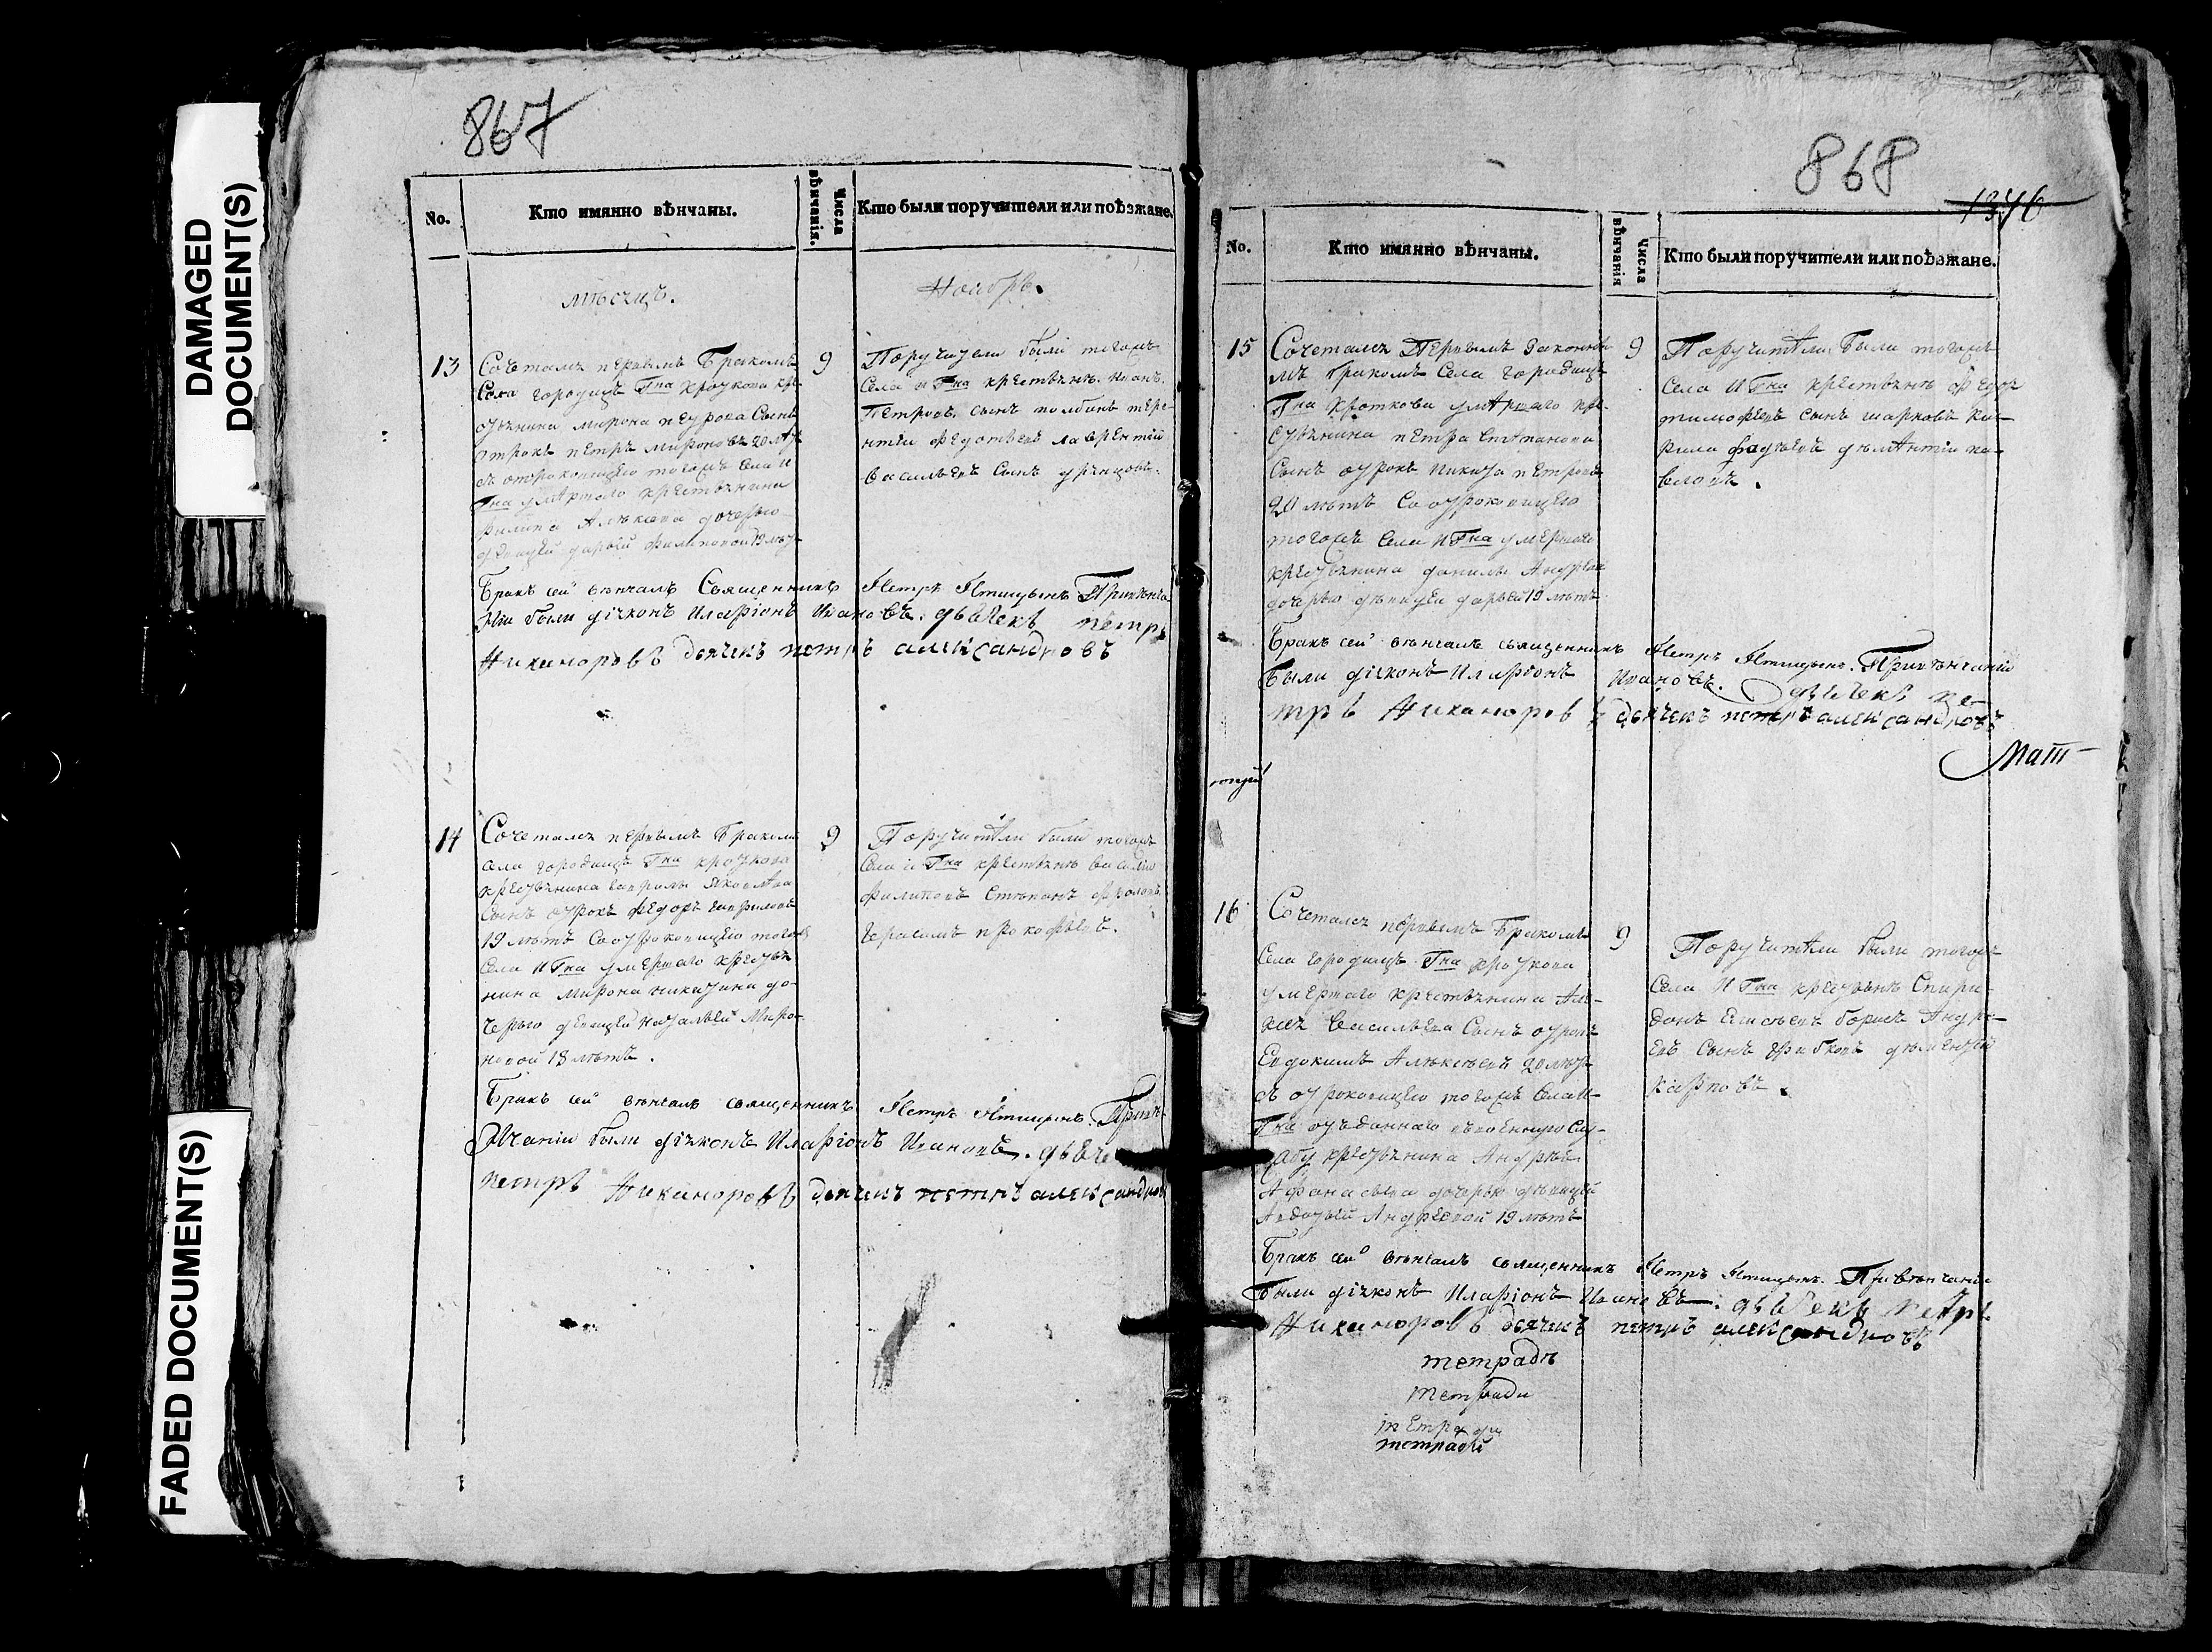 DAMAGED
DOCUMENT(S)
FADED DOCUMENT(S)
867
No.
Кто имянно вѣнчаны.
Числа
вѣнчанія.
Кто были поручители или поѣзжане.
мѣсяцъ.
Ноябрь.
13
Сочетался первымъ Бракомъ
Села городищъ Гна кроткова кре
стьянина мирона
отрокъ петръ мироновъ 20 лѣт
съ отроковицею тогожъ села и
Гна умершаго крестьянина
филипа Алексева дочерью
девицей дарьей филиповой 19 лѣт
9
Поручители были тогожъ
Села и Гна крестьяне. иванъ.
Петровъ. сынъ тере-
нтій федотьевъ лаврентій
Васильевъ сынъ
Бракъ сей вѣнчалъ Священникъ Петръ Птицынъ Привѣнча
ніи были діяконъ Иларіонъ Ивановъ. дьячекъ петръ
Никаноровъ дьячекъ петръ александровъ
14
Сочетался первымъ Бракомъ
села городищъ Гна кроткова
крестьянина гаврилы Яковлева
Сынъ отрокъ федоръ гавриловъ
19 лѣтъ Со отроковицею тогожъ
Села И Гна умершаго крестья
нина Мирона никитина до-
черью девицей натальей Миро-
новой 18 лѣтъ.
9
Поручители были тогожъ
Села и Гна крестьяне василій
филиповъ Степанъ фроловъ
герасимъ прокофьевъ.
Бракъ сей вѣнчалъ священникъ Петръ Птицынъ. Привѣ-
нчаніи были діяконъ Иларіонъ Ивановъ. дьяче
петръ Никаноровъ дьячекъ петръ александров
868
1346
No.
Кто имянно вѣнчаны.
Числа
вѣнчанія
Кто были поручители или поѣзжане.
15
Сочетался Первымъ Законны
мъ бракомъ Села городищъ
Гна кроткова умершаго кре-
стьянина петра степанова
Сынъ отрокъ никита петровъ
20 лѣтъ Со отроковицею
тогожъ Села И Гна умершаго
крестьянина данилы Андреева
дочерью девицей дарьей 19 лѣтъ
9
Поручители Были тогожъ
Села И Гна крестьяне федоръ
тимофеевъ сынъ шарковъ ки-
рила фадѣевъ дѣментій па-
вловъ.
Бракъ сей вѣнчалъ священникъ Петръ Птицынъ. Привѣнчаніи
Были діяконъ Иларіонъ Ивановъ. дьячекъ пе
тръ Никаноровъ дьячекъ петръ александровъ
Мат
16
Сочетался первымъ Бракомъ
Села городищъ Гна кроткова
умершаго крестьянина Але-
ксея Васильева Сынъ отрокъ
Евдокимъ Алексѣевъ 20 лѣтъ
съ отроковицею тогожъ Села И
Гна отъданнаго въ военную Слу-
жбу крестьянина Андрея
Афанасьева дочерью девицей
Авдотьей Андреевой 19 лѣтъ
9
Поручители были тогожъ
Села И Гна крестьяне Спири-
донъ Елисѣевъ борисъ Андре-
евъ Сынъ дѣментей
карповъ.
Бракъ сей вѣнчалъ священникъ Петръ Птицынъ. Привѣнчаніи
Были діяконъ Иларіонъ Ивановъ. дьячекъ петръ
Никаноровъ дьячекъ петръ александровъ
тетрадь
тетради
тетради
тетрадей